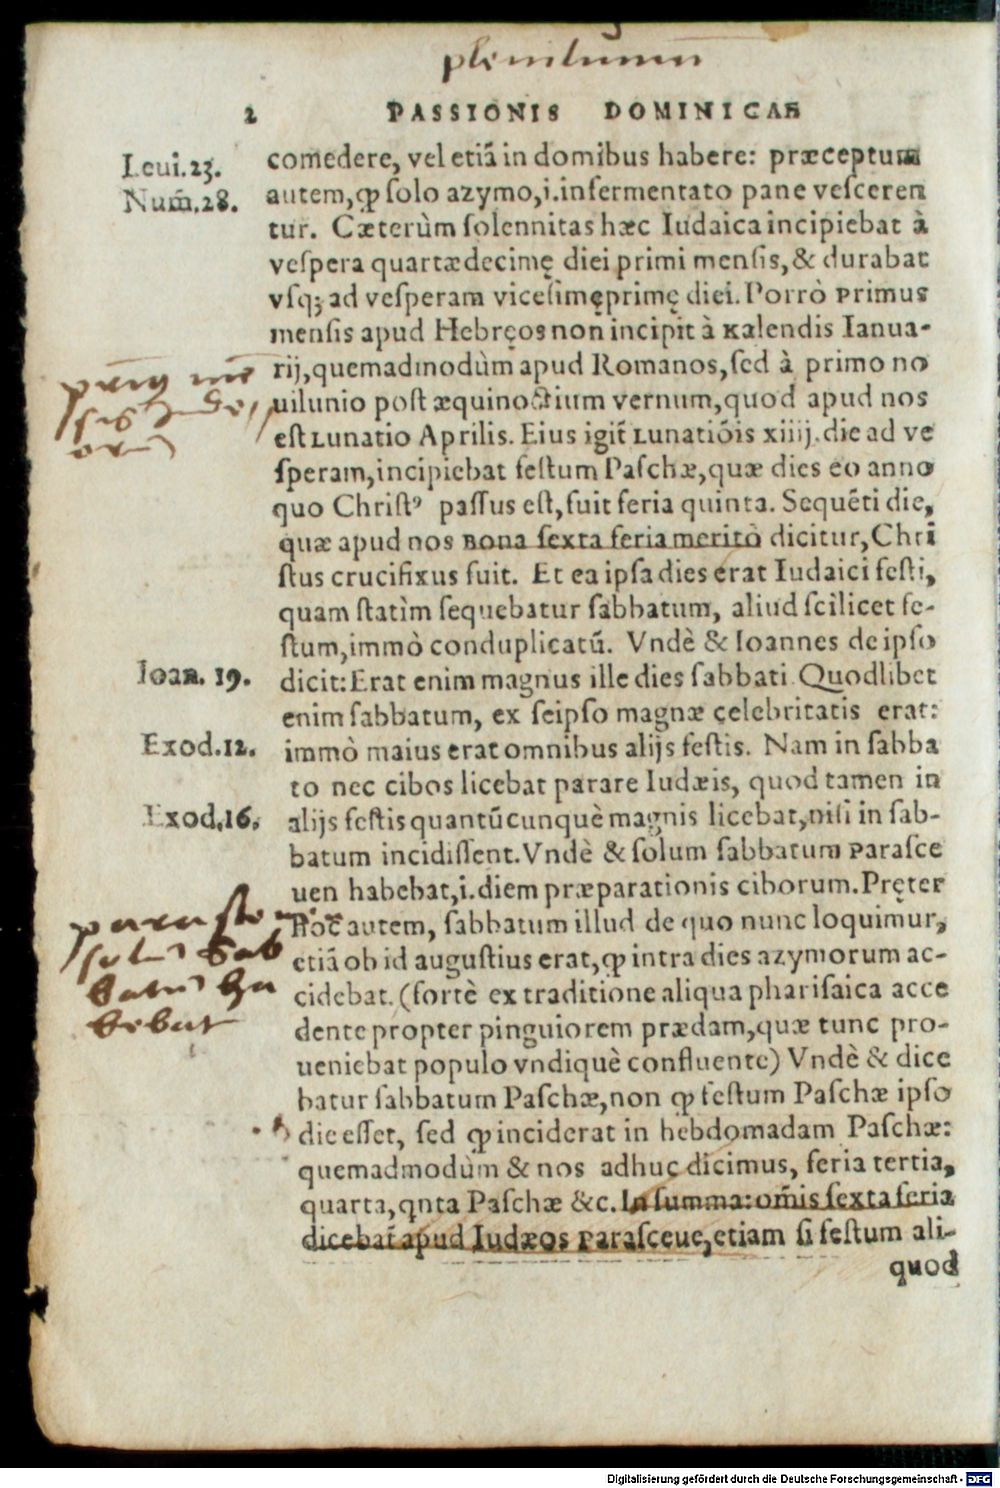 plenilunium
2 PASSIONIS DOMINICAE
Leui.23.
Num̃.28.
comedere, vel etiã in domibus habere: præceptum
autem, ꝙ ſolo azymo,i.infermentato pane veſceren
tur. Cæterùm ſolennitas hæc Iudaica incipiebat à
veſpera quartædecimę diei primi menſis, & durabat
vſqꝫ ad veſperam viceſimęprimę diei. Porrò primus
menſis apud Hebręos non incipit à Kalendis Ianua-
rij, quemadmodùm apud Romanos, ſed à primo no
uilunio poſt æquinoctium vernum, quod apud nos
eſt Lunatio Aprilis. Eius igit̃ Lunatiõis xiiij. die ad ve
ſperam, incipiebat feſtum Paſchæ, quæ dies eo anno
quo Chriſtꝰ paſſus eſt, fuit feria quinta. Sequẽti die,
quæ apud nos bona ſexta feria meritò dicitur, Chri
ſtus crucifixus fuit. Et ea ipſa dies erat Iudaici feſti,
quam ſtatìm ſequebatur ſabbatum, aliud ſcilicet fe-
ſtum, immò conduplicatũ. Vndè & Ioannes de ipſo
Ioan. 19.
dicit: Erat enim magnus ille dies ſabbati. Quodlibet
enim ſabbatum, ex ſeipſo magnæ celebritatis erat:
Exod.12.
immò maius erat omnibus alijs feſtis. Nam in ſabba
to nec cibos licebat parare Iudæis, quod tamen in
Exod.16.
alijs feſtis quantũcunquè magnis licebat, niſi in ſab-
batum incidiſſent. Vndè & ſolum ſabbatum paraſce
uen habebat,i. diem præparationis ciborum. Pręter
hoc autem, ſabbatum illud de quo nunc loquimur,
ſolũ Sab
batũ ha
bebat
etiã ob id auguſtius erat, ꝙ intra dies azymorum ac-
cidebat. (fortè ex traditione aliqua phariſaica acce
dente propter pinguiorem prædam, quæ tunc pro-
ueniebat populo vndiquè confluente) Vndè & dice
batur ſabbatum Paſchæ, non ꝙ feſtum Paſchæ ipſo
die eſſet, ſed ꝙ inciderat in hebdomadam Paſchæ:
quemadmodùm & nos adhuc dicimus, feria tertia,
quarta, qnta Paſchæ &c. In ſumma: om̃is ſexta feria
dicebat̃ apud Iudæos paraſceue, etiam ſi feſtum ali-
quod
Digitalisierung gefördert durch die Deutsche Forschungsgemeinschaft - DFG